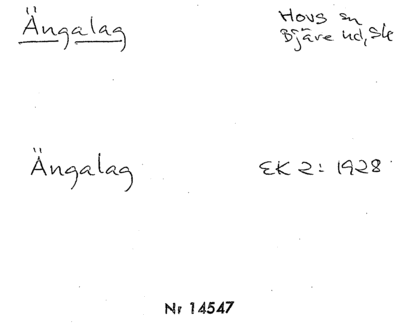 Ängalag
Hovs sn
Bjäre hd, Sk
Ängalag EK 2: 1928
Nr 14547